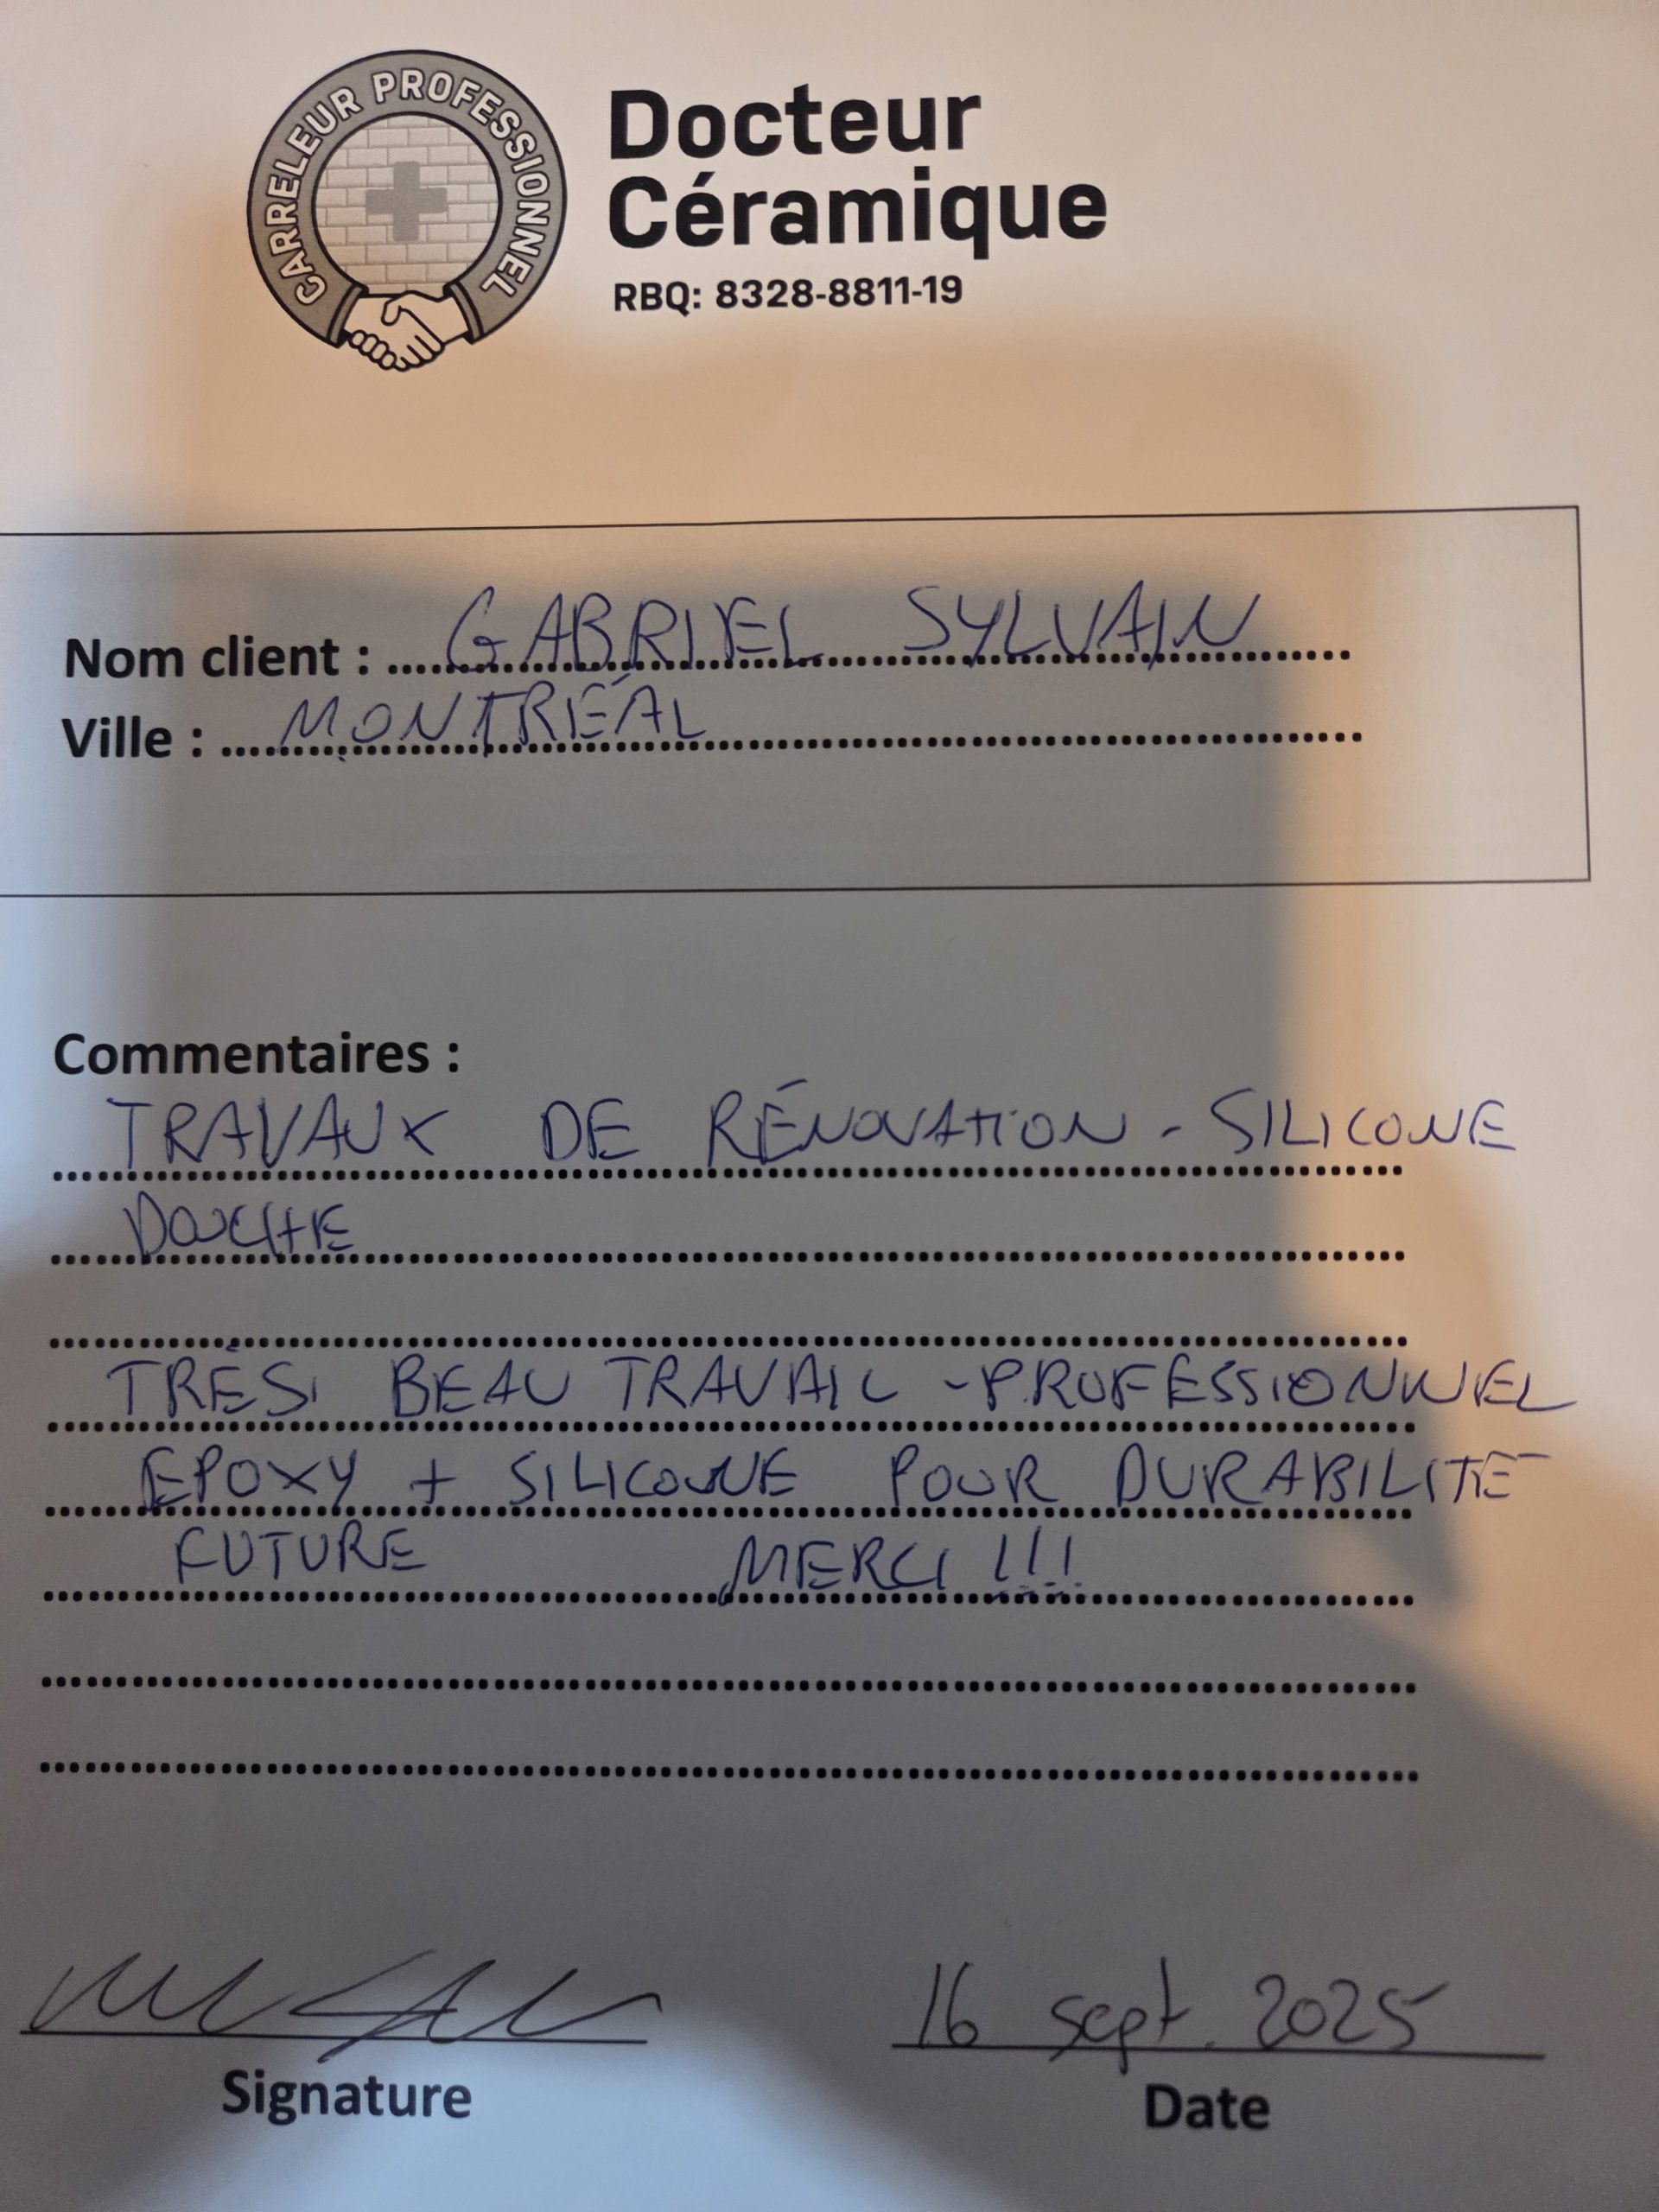 CARRELEUR PROFESSIONNEL
Docteur
Céramique
RBQ: 8328-8811-19
Nom client : GABRIEL SYLVAIN
Ville : MONTRÉAL
Commentaires :
TRAVAUX DE RÉNOVATION - SILICONE
DOUCHE
TRÈS BEAU TRAVAIL - PROFESSIONNEL
EPOXY + SILICONE POUR DURABILITÉ
FUTURE MERCI !!!
16 sept. 2025
Signature Date